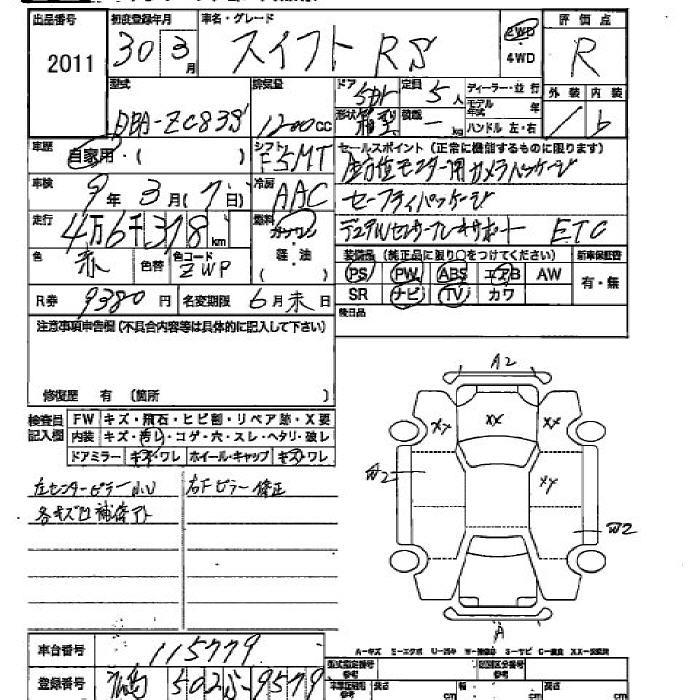 出品番号 初度登録年月 車名・グレード 評価点
2011 30年 3月 スイフト RS 2WD 4WD R
型式 排気量 ドア 定員 ディーラー・並行 外装 内装
DBA-ZC83S 1200cc 5ドア 5人 モデル年式 年
形状 箱型 積載 ー kg ハンドル 左・右 b
車歴 自家用・( ) シフト F5MT セールスポイント (正常に機能するものに限ります)
全方位モニター用カメラパッケージ
車検 9年 3月(7日) 冷房 AAC セーフティパッケージ
走行 4万6千378km 燃料 ガソリン 軽油 ( ) デュアルセンサーブレーキサポート ETC
色 赤 色替 色コード ZWP 装備品 (純正品に限り○をつけてください) 新車保証書
PS PW ABS エアB AW 有・無
R券 9380円 名変期限 6月末日 SR ナビ TV カワ
注意事項申告欄(不具合内容等は具体的に記入して下さい) 後日品
修復歴 有 (箇所
検査員記入欄 FW キズ・飛石・ヒビ割・リペア跡・X要
内装 キズ・汚れ・コゲ・穴・スレ・ヘタリ・破レ
ドアミラー キズ・ワレ ホイール・キャップ キズ・ワレ
左センターピラー小U 右Fピラー修正
各キズ凹補修アト
A2
XY XX XX
W2 XY
W2
A
A-キズ E-エクボ U-凹キ W-補修跡 S-サビ C-腐食 XX-交換済
車台番号 115779
型式指定番号 参考 類別区分番号 参考
登録番号 502 9579
長さ cm 幅 cm cm